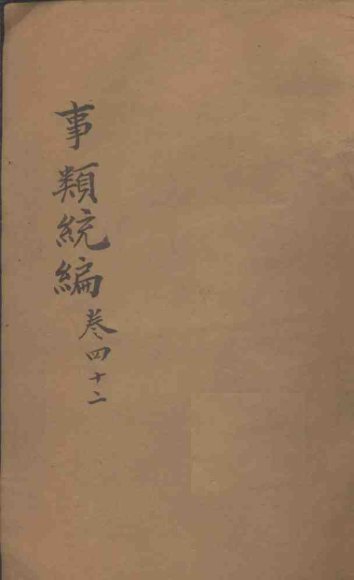 事類統編卷四十二